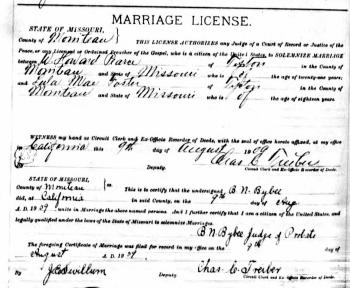 MARRIAGE LICENSE.
STATE OF MISSOURI,
County of Moniteau
THIS LICENSE AUTHORIZES any Judge of a Court of Record or Justice of the
Peace, or any Licensed or Ordained Preacher of the Gospel, who is a citizen of the United States, to SOLEMNIZE MARRIAGE
between Howard of Tipton in the County
of Moniteau and State of Missouri who is of the age of twenty-one years; and
Lula Mae Foster of Tipton in the County
of Moniteau and State of Missouri who is of the age of eighteen years.
WITNESS my hand as Circuit Clerk and Ex-Officio Recorder of Deeds, with the seal of office hereto affixed, at my office in
California this 9th day of August 1909
Chas C. Treiber
Circuit Clerk and Ex-Officio Recorder of Deeds.
Deputy.
STATE OF MISSOURI,
County of Moniteau ss. This is to certify that the undersigned B. N. Bybee
did, at California in said County, on the 9th day of Aug
A. D. 1909 unite in Marriage the above named persons. And I further certify that I am a citizen of the United States, and
legally qualified under the laws of the State of Missouri to solemnize Marriages.
B. N. Bybee Judge of Probate
The foregoing Certificate of Marriage was filed for record in my office on the 9th day of
August A. D. 1909.
By Chas. C. Treiber
Deputy. Circuit Clerk and Ex-Officio Recorder of Deeds.